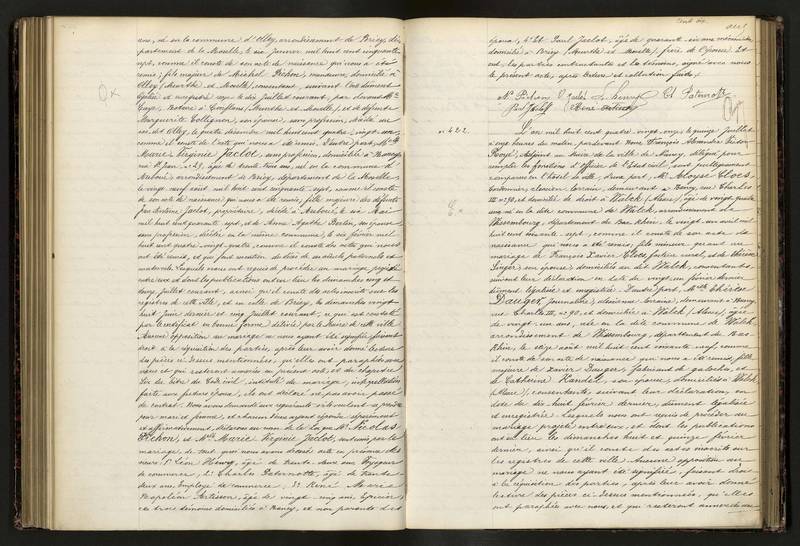 ans, né en la commune d'Olley, arrondissement de Briey, dé-
partement de la Moselle, le six Janvier mil huit cent cinquante
sept, comme il conste de son acte de naissance qui nous a été
remis; fils majeur de Michel Pichon, manœuvre, domicilié à
Olley (Meurthe et Moselle), consentant, suivant
enregistré le six Juillet courant, par devant Me
Notaire à Conflans (Meurthe et Moselle), et de défunte
Marguerite Collignon, son épouse, sans profession, décédée au
susdit Olley, le quatre décembre mil huit cent quatre-vingt-un
comme il conste de l'acte qui nous a été remis. D'autre part, Mlle
Marie Virginie Jaclot, sans profession, domiciliée à Nancy,
rue St Jean, âgée de trente trois ans, née en la commune d'
Auboué, arrondissement de Briey, département de la Moselle,
le vingt neuf août mil huit cent cinquante sept, comme il conste
de son acte de naissance qui nous a été remis, fille majeure de défunts
Jean Antoine Jaclot, propriétaire, décédé à Auboué, le six Mai
mil huit cent quatre vingt sept, et de Anne Agathe Bertin, son épouse
sans profession, décédée en la même commune, le six février mil
huit cent quatre-vingt-quatre, comme il conste des actes qui nous
ont été remis, et qui font mention du décès de ses aïeuls paternels et
maternels. Lesquels nous ont requis de procéder au mariage projeté
entre eux et dont les publications ont eu lieu les dimanches cinq et
douze Juillet courant, ainsi qu'il conste des actes inscrits sur les
registres de cette ville, et en celle de Briey, les dimanches vingt-
huit Juin dernier et cinq Juillet courant, ce qui est constaté
par le certificat en bonne forme délivré par le Maire de cette ville
Aucune opposition au mariage ne nous ayant été signifiée, faisant
droit à la réquisition des parties, après leur avoir donné lecture
des pièces ci-dessus mentionnées, qu'elles ont paraphées avec
nous et qui resteront annexées au présent acte, et du chapitre
six du titre du Code civil, intitulé du mariage, interpellation
faite aux futurs époux, ils ont déclaré ne pas avoir passé
de contrat. Nous avons demandé aux requérants s'ils veulent se prendre
pour mari et femme, et chacun d'eux ayant répondu séparément
et affirmativement, déclarons au nom de la Loi que Mr Nicolas
Pichon, et Mlle Marie Virginie Jaclot, sont unis par le
mariage. De tout quoi nous avons dressé acte en présence des
sieurs 1° Léon Henry, âgé de trente deux ans, Voyageur
de commerce, 2° Charles Paternotte, âgé de trente
deux ans, Employé de commerce, 3° René Marie
Napoléon Artisson, âgé de vingt cinq ans, Epicier,
ces trois témoins domiciliés à Nancy, et non parents des
Cent six.
époux, 4° Et Paul Jaclot, âgé de quarante six ans
domicilié à Briey (Meurthe et Moselle), frère de l'épouse. Et
ont, les parties contractantes et les témoins, signé avec nous
le présent acte, après lecture et collation faite.
N. Pichon V. Jaclot L. Henry Ch. Paternotte
Paul Jaclot René
no 422.
L'an mil huit cent quatre-vingt onze le quinze Juillet
à onze heures du matin, pardevant Nous François Alexandre Victor
Adjoint au Maire de la ville de Nancy, délégué pour
remplir les fonctions d'officier de l'Etat civil, sont publiquement
comparus en l'hôtel de ville, D'une part, Mr Aloyse Cloes,
Cordonnier, alsacien-lorrain, demeurant à Nancy, rue Charles
III no 90, et domicilié de droit à Walck (Alsace), âgé de vingt quatre
ans, né en la dite commune de Walck, arrondissement de
Wissembourg, département du Bas-Rhin, le vingt un avril mil
huit cent soixante sept, comme il conste de son acte de
naissance qui nous a été remis, fils mineur quant au
mariage de François Xavier Cloes, facteur rural, et de Thérèse
Singer, son épouse, domiciliés au dit Walck, consentants,
suivant leur déclaration en date du vingt un février dernier,
dûment légalisée et enregistrée. D'autre part, Mlle Thérèse
Dauger, journalière, alsacienne-lorraine, demeurant à Nancy,
rue Charles III, no 90, et domiciliée à Walck (Alsace), âgée
de vingt-un ans, née en la dite commune de Walck,
arrondissement de Wissembourg, département du Bas-
Rhin, le sept août mil huit cent soixante neuf comme
il conste de son acte de naissance qui nous a été remis, fille
majeure de Xavier Dauger, fabricant de galoches, et
de Catherine Kandel, son épouse, domiciliés à Walck
(Alsace), consentants, suivant leur déclaration, en
date du dix-huit février dernier, dûment légalisée
et enregistrée. Lesquels nous ont requis de procéder au
mariage projeté entre eux, et dont les publications
ont eu lieu les dimanches huit et quinze février
dernier, ainsi qu'il conste des actes inscrits sur
les registres de cette ville. Aucune opposition au
mariage ne nous ayant été signifiée, faisant droit
à la réquisition des parties, après leur avoir donné
lecture des pièces ci-dessus mentionnées, qu'elles
ont paraphées avec nous, et qui resteront annexées au